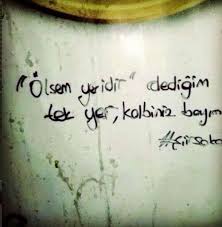 "Ölsem yeridir" dediğim
tek yer, kalbiniz bayım